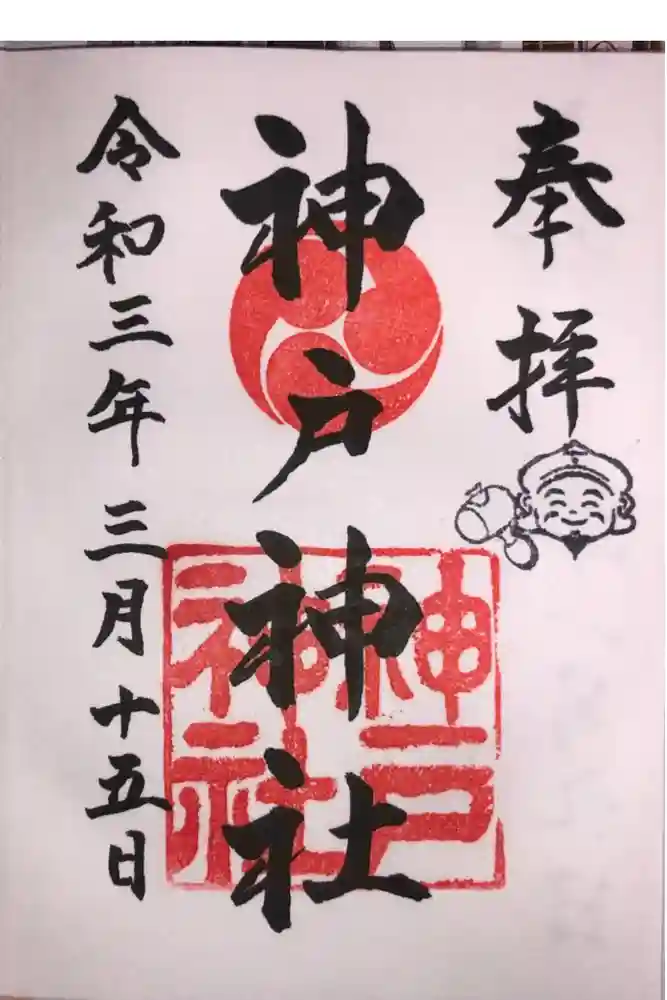 奉拝
神戸神社
神戸神社
令和三年三月十五日